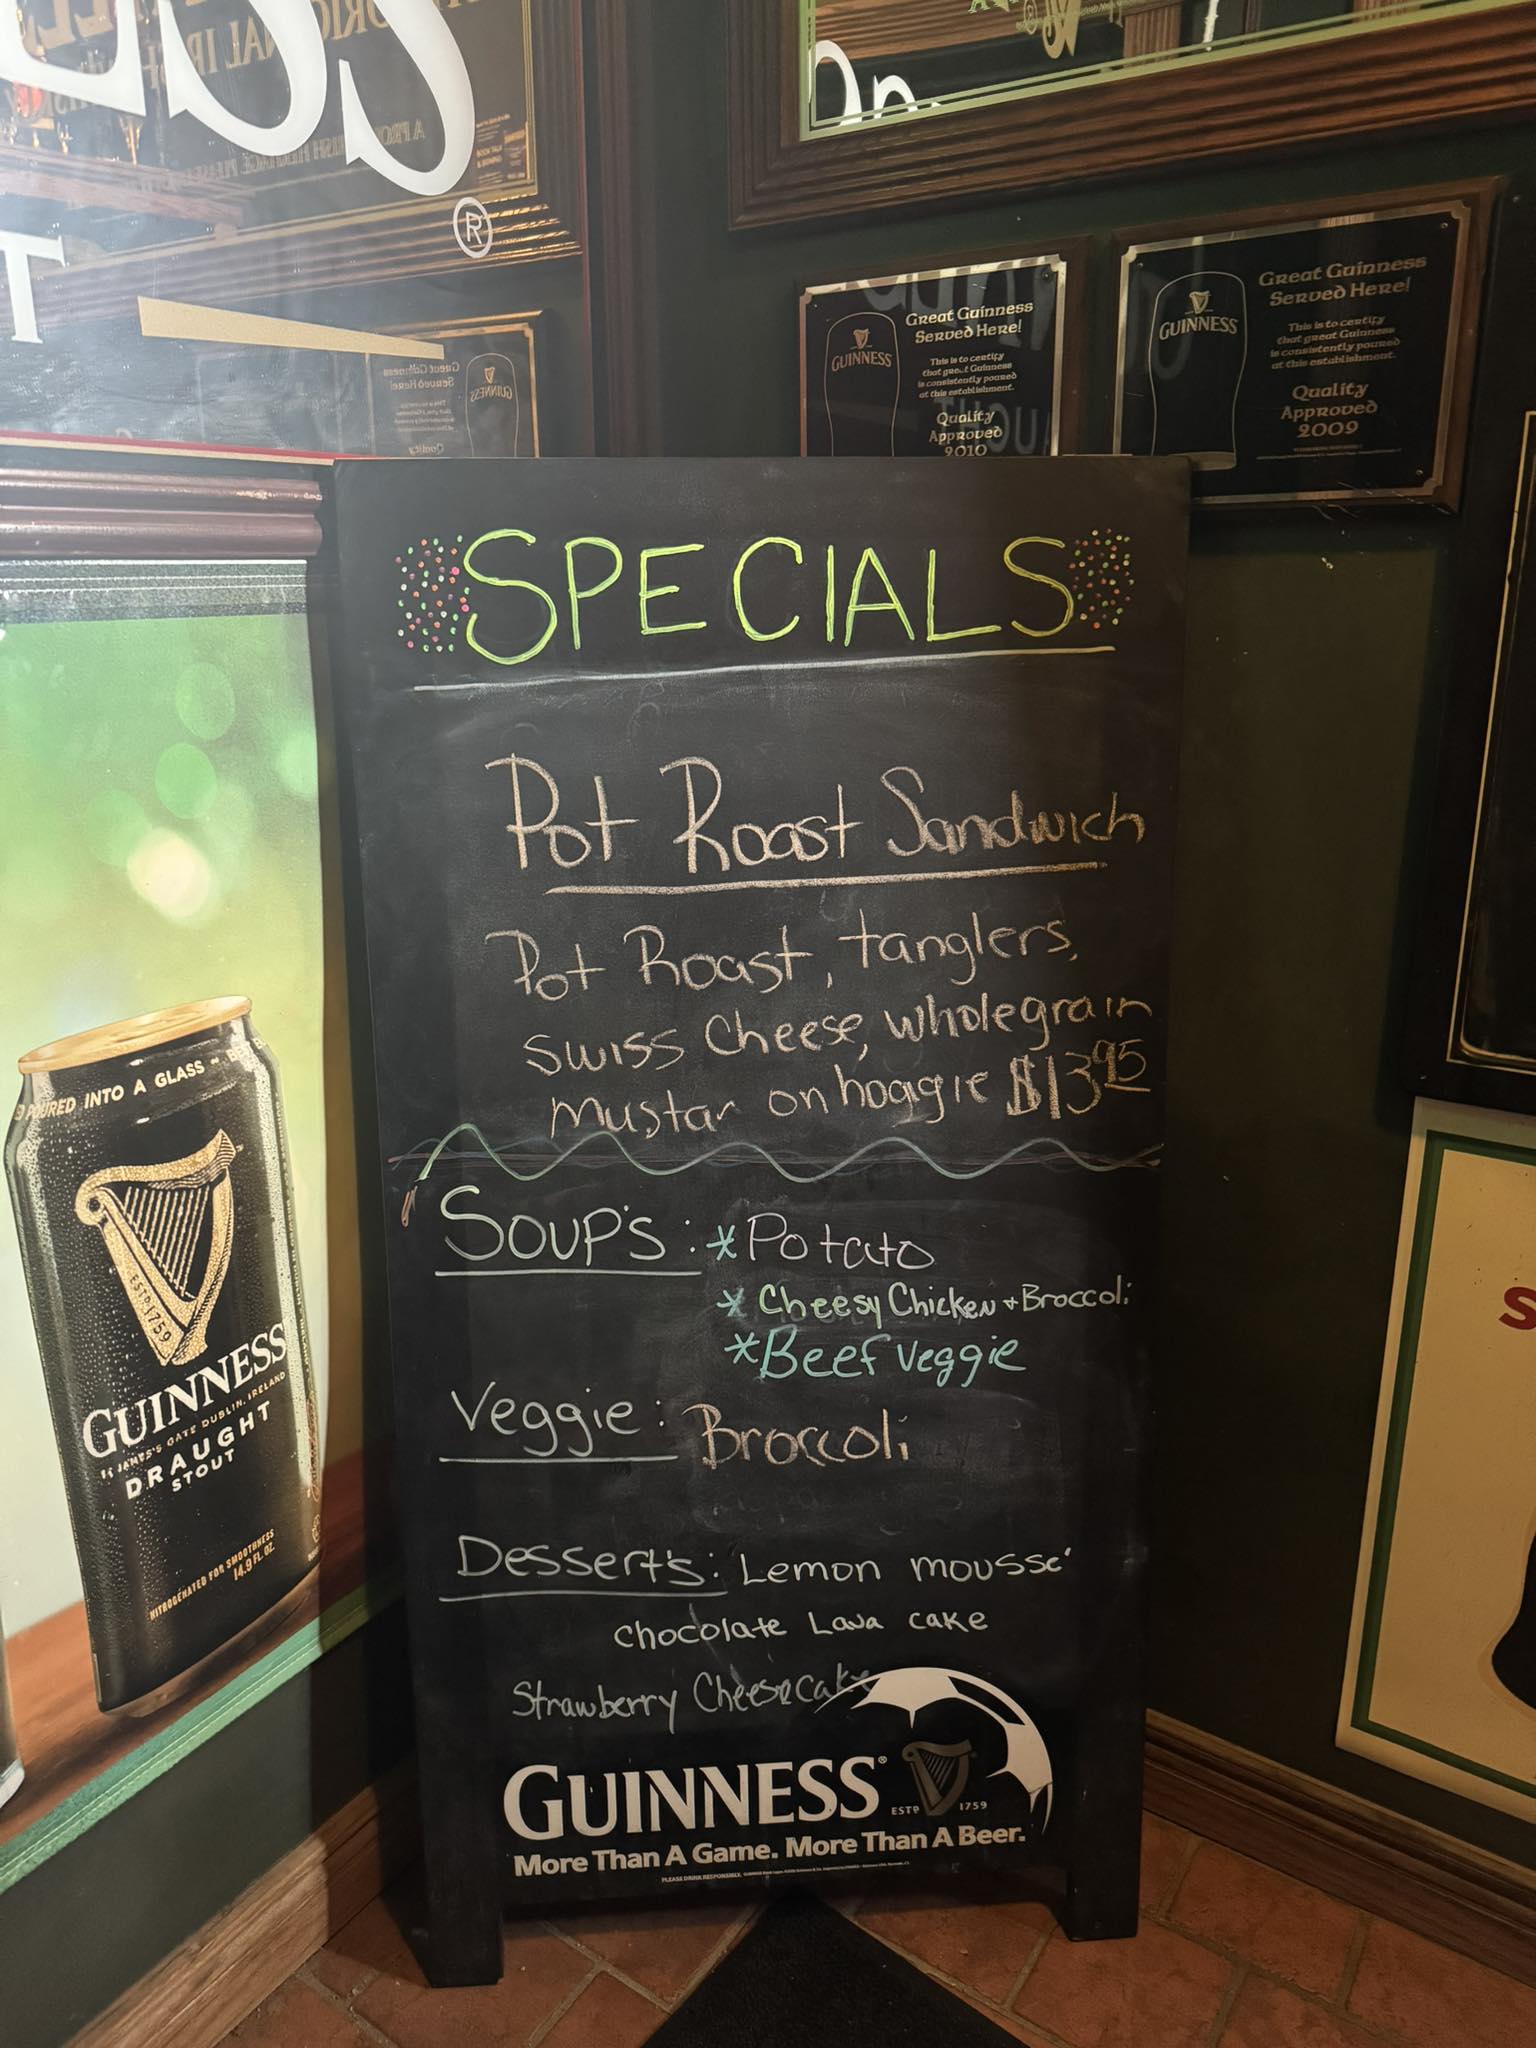 ®
T
Great Guinness
Served Here!
This is to certify
that great Guinness
is consistently poured
at this establishment.
Quality
Approved
2010
GUINNESS
Great Guinness
Served Here!
This is to certify
that great Guinness
is consistently poured
at this establishment.
Quality
Approved
2009
GUINNESS
SPECIALS
Pot Roast Sandwich
Pot Roast, tanglers,
swiss Cheese, wholegrain
mustar on hoagie $13.95
Soup's: *Potato
* Cheesy Chicken + Broccoli
*Beef veggie
Veggie: Broccoli
Dessert's: Lemon mousse'
chocolate Lava cake
Strawberry Cheesecake
GUINNESS®
ESTD 1759
More Than A Game. More Than A Beer.
PLEASE DRINK RESPONSIBLY.
POURED INTO A GLASS
ESTD 1759
GUINNESS
ST JAMES'S GATE DUBLIN. IRELAND
DRAUGHT
STOUT
NITROGENATED FOR SMOOTHNESS
14.9 FL OZ.
S